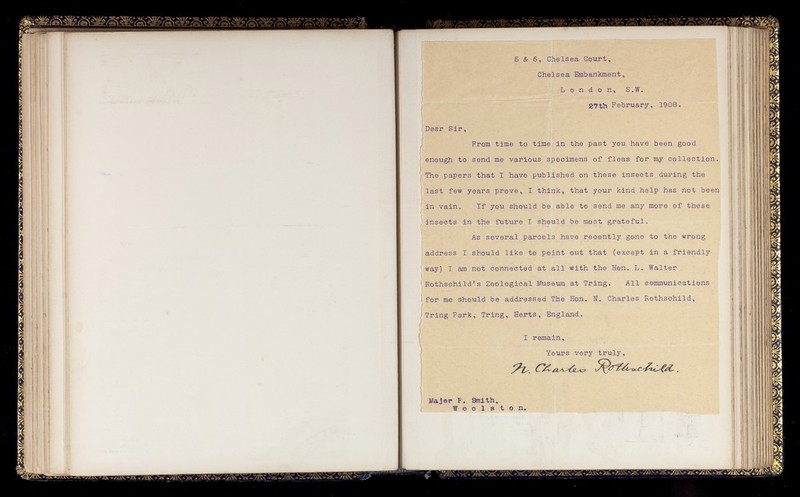 5 & 6, Chelsea Court,
Chelsea Embankment,
London, S.W.
27th February, 1908.
Dear Sir,
From time to time in the past you have been good
enough to send me various specimens of fleas for my collection.
The papers that I have published on these insects during the
last few years prove, I think, that your kind help has not been
in vain. If you should be able to send me any more of these
insects in the future I should be most grateful.
As several parcels have recently gone to the wrong
address I should like to point out that (except in a friendly
way) I am not connected at all with the Hon. L. Walter
Rothschild's Zoological Museum at Tring. All communications
for me should be addressed The Hon. N. Charles Rothschild,
Tring Park, Tring, Herts, England.
I remain,
Yours very truly,
N. Charles Rothschild.
Major F. Smith,
Woolston.